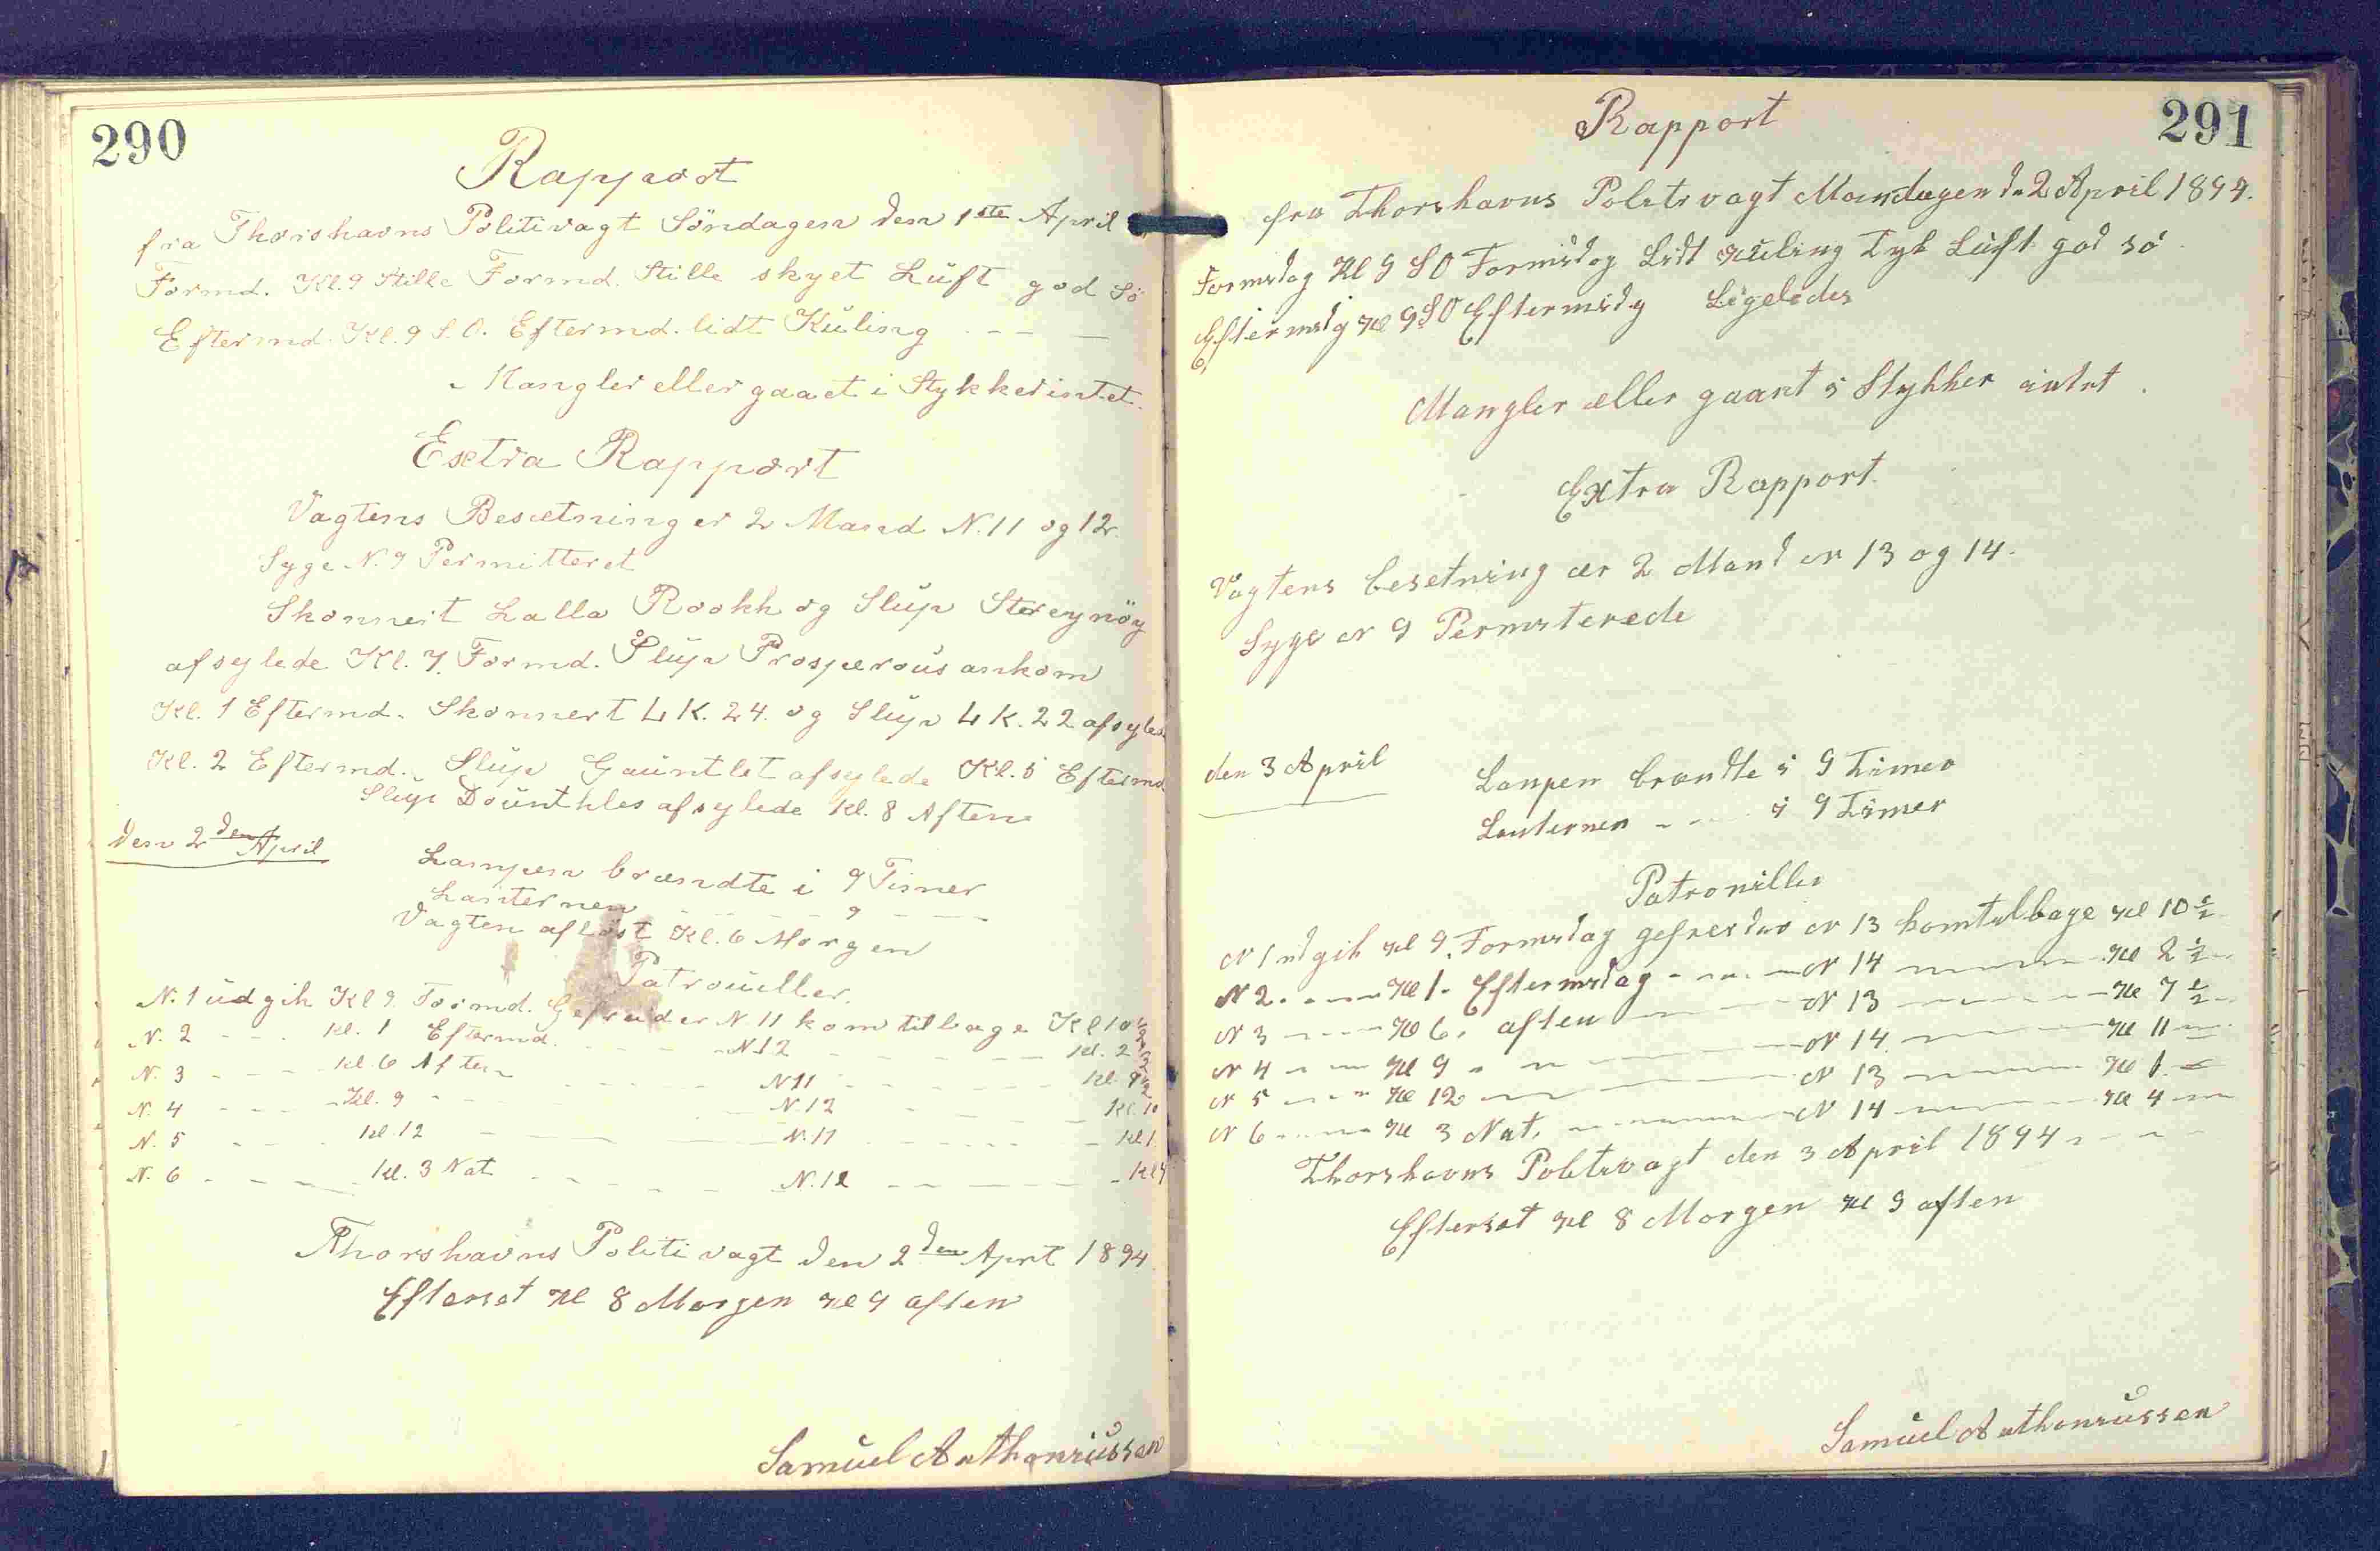 290
Rapport
fra Thorshavns Politivagt Söndagen den 1ste April
Formd. Kl. 9 Stille Formd. Stille skyet Luft god Sö
Eftermd. Kl. 9 S.O. Eftermd. lidt Kuling - - -
Mangler eller gaaet i Stykker intet.
Extra Rapport
Vagtens Besætning er 2 Mand N. 11 og 12.
Syge N. 9 Permitteret
Skonnert Lalla Rookh og Slup Streymöy
afsejlede Kl. 7. Formd. Slup Prosperous ankom
Kl. 1 Eftermd. Skonnert L K. 24. og Slup L K. 22 afsylede
Kl. 2 Eftermd. Slup Gauntlet afsylede Kl. 5 Eftermd
Slup Dounthles afsylede Kl. 8 Aften
den 2den April
Lampen brændte i 9 Timer
Lanternen - - - 9 - - -
Vagten aflöst Kl. 6 Morgen
Patrouiller.
N. 1 udgik Kl 9. Formd. Gefreider N. 11 kom tilbage Kl 10 1/2
N. 2 - - - Kl. 1 Eftermd. - - - N 12 - - - Kl. 2
N. 3 - - - Kl. 6 Aften - - - N 11 - - - Kl.
N. 4 - - - Kl. 9 - - - N. 12 - - - Kl. 10
N. 5 - - - Kl. 12 - - - N. 11 - - - Kl 1.
N. 6 - - - Kl. 3 Nat - - - N. 12 - - - Kl 4
Thorshavns Politivagt den 2den Aprl 1894
Efterset Kl 8 Morgen Kl 9 aften
Samuel Anthoniussen
291
Rapport
fra Thorshavns Politivagt Mandagen dn 2 April 1894.
Formidag Kl 9 SO Formidag Lidt Kuling Tyk Luft god sö
Eftermidg Kl 9 SO Eftermidg Ligeledes
Mangler æller gaaet i Stykker intet.
Extra Rapport.
Vagtens besetning ær 2 Mand N 13 og 14.
Syge N 9 Permiterede
den 3 April
Lampen brændte i 9 Timer
Lanternen - - - i 9 Timer
Patroniller
N 1 udgik Kl 9. Formidag gefreider N 13 komtilbage Kl 10 1/2
N 2 - - - Kl 1. Eftermidag - - - N 14 - - - Kl 2 1/2
N 3 - - - Kl 6. aften - - - N 13 - - - Kl 7 1/2
N 4 - - - Kl 9 - - - N 14 - - - Kl 11
N 5 - - - Kl 12 - - - N 13 - - - Kl 1
N 6 - - - Kl 3 Nat. - - - N 14 - - - Kl 4
Thorshavns Politivagt den 3 April 1894
Efterset Kl 8 Morgen Kl 9 aften
Samuel Anthoniussen